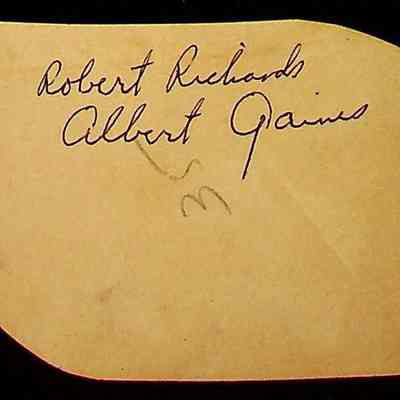 Robert Richards
Albert Gaines